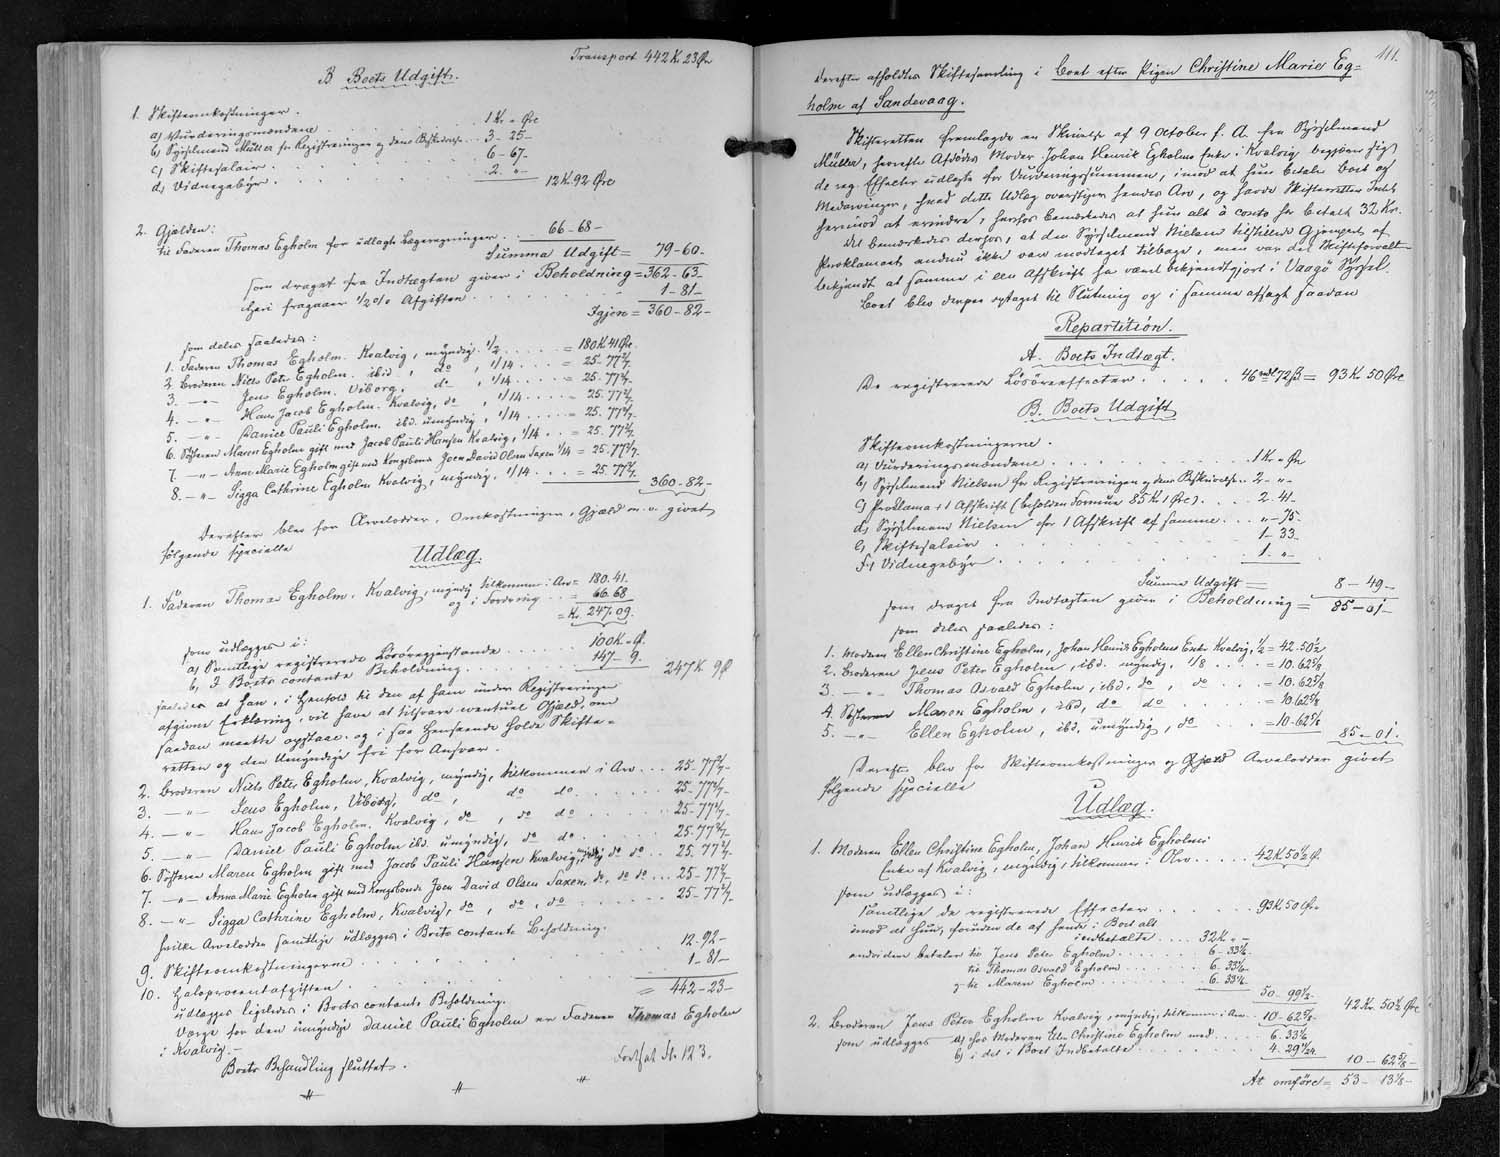 Transport 442 K. 23 Ør
B Boets Udgift.
1. Skifteomkostninger.
a) Vurderingsmændene . . . 1 Kr. " Øre
b) Sysselmand Müller for Registreringen og dens Beskrivelse . . 3 - 25 -
c) Skiftesalair . . . 6 - 67 -
d) Vidnegebyr . . . 2 - " -
12 K. 92 Øre
2. Gjælden:
til Faderen Thomas Egholm for udlagte Lægeregninger . . 66 - 68 -
Summa Udgift = 79 - 60 -
som draget fra Indtægten giver i Beholdning = 362 - 63 -
heri fragaaer 1/2 o/o Afgiften . . . 1 - 81 -
Igjen = 360 - 82 -
som deles saaledes:
1. Faderen Thomas Egholm, Kvalvig, myndig, 1/2 . . . = 180 K 41 Øre
2. Broderen Niels Peter Egholm, ibid., do, 1/14 . . . = 25 - 77 2/7
3. — " — Jens Egholm, Viborg, do, 1/14 . . . = 25 - 77 2/7
4. — " — Hans Jacob Egholm, Kvalvig, do, 1/14 . . . = 25 - 77 2/7
5. — " — Daniel Pauli Egholm, ibd. umyndig, 1/14 . . . = 25 - 77 2/7
6. Søsteren Maren Egholm gift med Jacob Pauli Hansen Kvalvig, 1/14 . . = 25 - 77 2/7
7. — " — Anne Marie Egholm gift med Kongsbonde Joen David Olsen Saxen 1/14 = 25 - 77 2/7
8. — " — Sigga Cathrine Egholm Kvalvig, myndig, 1/14 . . . = 25 - 77 2/7
360 - 82 -
Derefter blev for Arvelodder, Omkostninger, Gjæld m. v. givet
følgende specielle
Udlæg.
1. Faderen Thomas Egholm, Kvalvig, myndig tilkommer i Arv = 180. 41.
og i Fordring . . = 66. 68
= Kr. 247. 09.
som udlægges i:
a) Samtlige registrerede Løsøregjenstande . . . 100 K. " Ø.
b) I Boets contante Beholdning . . . 147 - 9.
247 K 9 Ø
saaledes at han, i Henhold til den af ham under Registreringen
afgivne Erklæring, vil have at tilsvare eventuel Gjæld, om
saadan maatte opstaae, og i saa Henseende holde Skifte-
retten og den Umyndige fri for Ansvar.
2. Broderen Niels Peter Egholm, Kvalvig, myndig, tilkommer i Arv . . 25 - 77 2/7 -
3. — " — Jens Egholm, Viborg, do, do do . . . 25 - 77 2/7 -
4. — " — Hans Jacob Egholm, Kvalvig, do, do do . . . 25 - 77 2/7 -
5. — " — Daniel Pauli Egholm ibd. umyndig, do do . . . 25 - 77 2/7 -
6. Søsteren Maren Egholm gift med Jacob Pauli Hansen Kvalvig, myndig do do . . 25. 77 2/7 -
7. — " — Anna Marie Egholm gift med Kongsbonde Joen David Olsen Saxen, do, do do . . . 25 - 77 2/7 -
8. — " — Sigga Cathrine Egholm, Kvalvig, do, do, do . . . 25 - 77 2/7 -
hvilke Arvelodder samtlige udlægges i Boets contante Beholdning.
9. Skifteomkostningerne . . . 12 - 92 -
10. Halvprocentafgiften . . . 1 - 81 -
udlægges ligeledes i Boets contante Beholdning. = 442 - 23 -
Værge for den umyndige Daniel Pauli Egholm er Faderen Thomas Egholm
i Kvalvig. -
Boets Behandling sluttet.
Fortsat fol. 123.
111.
Derefter afholdtes Skiftesamling i Boet efter Pigen Christine Marie Eg=
holm af Sandevaag.
Skifteretten fremlagde en Skrivelse af 9 October f. A. fra Sysselmand
Müller, hvorefter Afdødes Moder Johan Henrik Egholms Enke i Kvalvig begjærer sig
de reg. Effecter udlagte for Vurderingssummen, imod at hun betaler Boet og
Medarvinger, hvad dette Udlæg overstiger hendes Arv, og havde Skifteretten Intet
herimod at erindre, herhos bemærkedes at hun alt à conto har betalt 32 Kr.
Det bemærkedes derhos, at den Sysselmand Nielsen tilstillede Gjenpart af
Proklamaet endnu ikke var modtaget tilbage, men var det Skifteforvalt-
bekjendt at samme i een Afskrift har været bekjendtgjort i Vaagø Syssel.
Boet blev derpaa optaget til Slutning og i samme afsagt saadan
Repartition.
A. Boets Indtægt.
De registrerede Løsøreeffecter . . . 46 rdl. 72 ß = 93 K. 50 Øre
B. Boets Udgift
Skifteomkostningerne.
a) Vurderingsmændene . . . 1 Kr " Øre
b) Sysselmand Nielsen for Registreringen og dens Beskrivelse . . 2 - " -
c) Proklama i 1 Afskrift (beholden Formue 85 K 1 Øre) . . . 2 - 41 -
d) Sysselmand Nielsen for 1 Afskrift af samme . . . " - 75 -
e) Skiftesalair . . . 1 - 33 -
f) Vidnegebyr . . . 1 - " -
Summa Udgift = 8 - 49 -
som draget fra Indtægten giver i Beholdning = 85 - 01 -
som deles saaledes:
1. Moderen Ellen Christine Egholm, Johan Henrik Egholms Enke Kvalvig, 1/2 = 42. 50 1/2
2. Broderen Jens Peter Egholm, ibd. myndig, 1/8 . . . = 10. 62 5/8
3. — " — Thomas Osvald Egholm, ibd, do, do . . . = 10. 62 5/8
4. Søsteren Maren Egholm, ibd, do do . . . = 10. 62 5/8
5. — " — Ellen Egholm, ibd. umyndig, do . . . = 10 - 62 5/8
85 - 01.
Derefter blev for Skifteomkostninger og Gjæld Arvelodder givet
følgende specielle
Udlæg.
1. Moderen Ellen Christine Egholm, Johan Henrik Egholms
Enke af Kvalvig, myndig, tilkommer i Arv . . . 42 K 50 1/2 Ø.
som udlægges i:
Samtlige de registrerede Effecter . . . 93 K 50 Øre
imod at hun, foruden de af hende i Boet alt
indbetalte . . . 32 K " -
endvidere betaler til Jens Peter Egholm . . . 6 - 33 1/6
til Thomas Osvald Egholm . . . 6. 33 1/6
og til Maren Egholm . . . 6. 33 1/6
50 - 99 1/2
42 K. 50 1/2 Øre
2. Broderen Jens Peter Egholm Kvalvig, myndig, tilkommer i Arv . . 10 - 62 5/8
som udlægges a) hos Moderen Ellen Christine Egholm med . . . 6. 33 1/6
b) i det i Boet Indbetalte . . . 4. 29 11/24
10 - 62 5/8 -
At omføre = 53 - 13 1/8 -